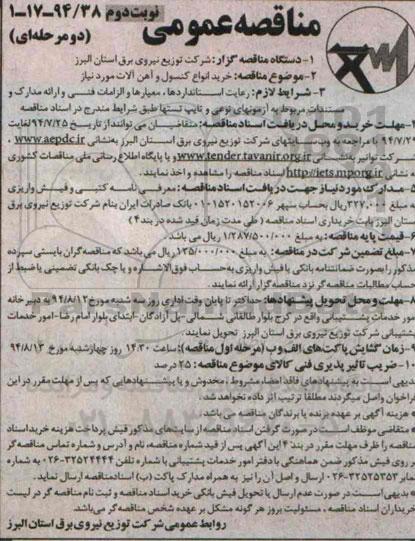 نوبت دوم ۹۴/۳۸-۱۷-۱
مناقصه عمومی
(دو مرحله‌ای)
۱- دستگاه مناقصه گزار: شرکت توزیع نیروی برق استان البرز
۲- موضوع مناقصه: خرید انواع کنسول و آهن آلات مورد نیاز
۳- شرایط لازم: رعایت استانداردها، معیارها و الزامات فنی و ارائه مدارک و
مستندات مربوط به آزمونهای نوعی و تایپ تستها طبق شرایط مندرج در اسناد مناقصه
۴- مهلت خرید و محل دریافت اسناد مناقصه: متقاضیان می توانند از تاریخ ۹۴/۷/۲۵ لغایت
۹۴/۷/۲۹ با مراجعه به وب سایتهای شرکت توزیع نیروی برق استان البرز به نشانی www.aepdc.ir
شرکت توانیر به نشانی www.tender.tavanir.org.ir و یا پایگاه اطلاع رسانی ملی مناقصات کشوری
به نشانی http://iets.mporg.ir اسناد مناقصه را مشاهده و اخذ نمایند.
۵- مدارک مورد نیاز جهت دریافت اسناد مناقصه: معرفی نامه کتبی و فیش واریزی
به مبلغ ۳۲۷.۰۰۰ ریال بحساب سپهر ۰۱۰۱۵۲۰۱۵۲۰۰۶ بانک صادرات ایران بنام شرکت توزیع نیروی برق
استان البرز بابت خریداری اسناد مناقصه (طی مدت زمان قید شده در بند ۴)
۶- قیمت پایه مناقصه: به مبلغ ۱/۲۸۷/۵۰۰/۰۰۰ ریال می باشد
۷- مبلغ تضمین شرکت در مناقصه: به مبلغ ۱۳۵/۰۰۰/۰۰۰ ریال می باشد که مناقصه گران بایستی سپرده
مذکور را بصورت ضمانتنامه بانکی یا فیش واریزی به حساب فوق الاشاره و یا چک بانکی تضمینی یا ضبط از
حساب مطالبات مناقصه گر نزد مناقصه گزار ارائه نمایند.
۸- مهلت و محل تحویل پیشنهادها: حداکثر تا پایان وقت اداری روز سه شنبه مورخ ۹۴/۸/۱۲ به دبیرخانه
امور خدمات پشتیبانی واقع در کرج بلوار طالقانی شمالی- پل آزادگان - ابتدای بلوار امام رضا - امور خدمات
پشتیبانی شرکت توزیع نیروی برق استان البرز تحویل نمایند.
۹- زمان گشایش پاکت های الف و ب (مرحله اول مناقصه): ساعت ۱۴:۳۰ روز چهارشنبه مورخ ۹۴/۸/۱۳
۱۰- ضریب تاثیر پذیری فنی کالای موضوع مناقصه: ۲۵ درصد
بدیهی است به پیشنهادهای فاقد امضاء، مشروط، مخدوش و یا پیشنهادهایی که پس از مهلت مقرر در این
فراخوان واصل میگردند مطلقا ترتیب اثر داده نخواهد شد.
هزینه آگهی بر عهده برنده یا برندگان مناقصه می باشد.
متقاضی موظف است در صورت گرفتن اسناد مناقصه از سایت های مذکور فیش پرداخت هزینه خرید اسناد
مناقصه را ظرف مهلت مقرر در بند ۴ این آگهی پس از قید شماره مناقصه، نام و آدرس و شماره تماس مناقصه گر
بر روی فیش مذکور ضمن هماهنگی با دفتر امور خدمات پشتیبانی با شماره تلفن ۳۲۵۲۴۴۴۴-۰۲۶ به شماره
نمابر ۳۲۵۲۵۳۵۳-۰۲۶ ارسال و اصل آن را نیز به همراه مدارک پاکت (ب) اسناد مناقصه ارسال نماید.
بدیهی است در صورت عدم ارسال یا تحویل فیش بانکی خرید اسناد مناقصه و ثبت نام مناقصه گر در لیست
خریداران اسناد مناقصه، مسئولیت بروز هر گونه مشکل بر عهده شخص مناقصه گر می باشد.
روابط عمومی شرکت توزیع نیروی برق استان البرز